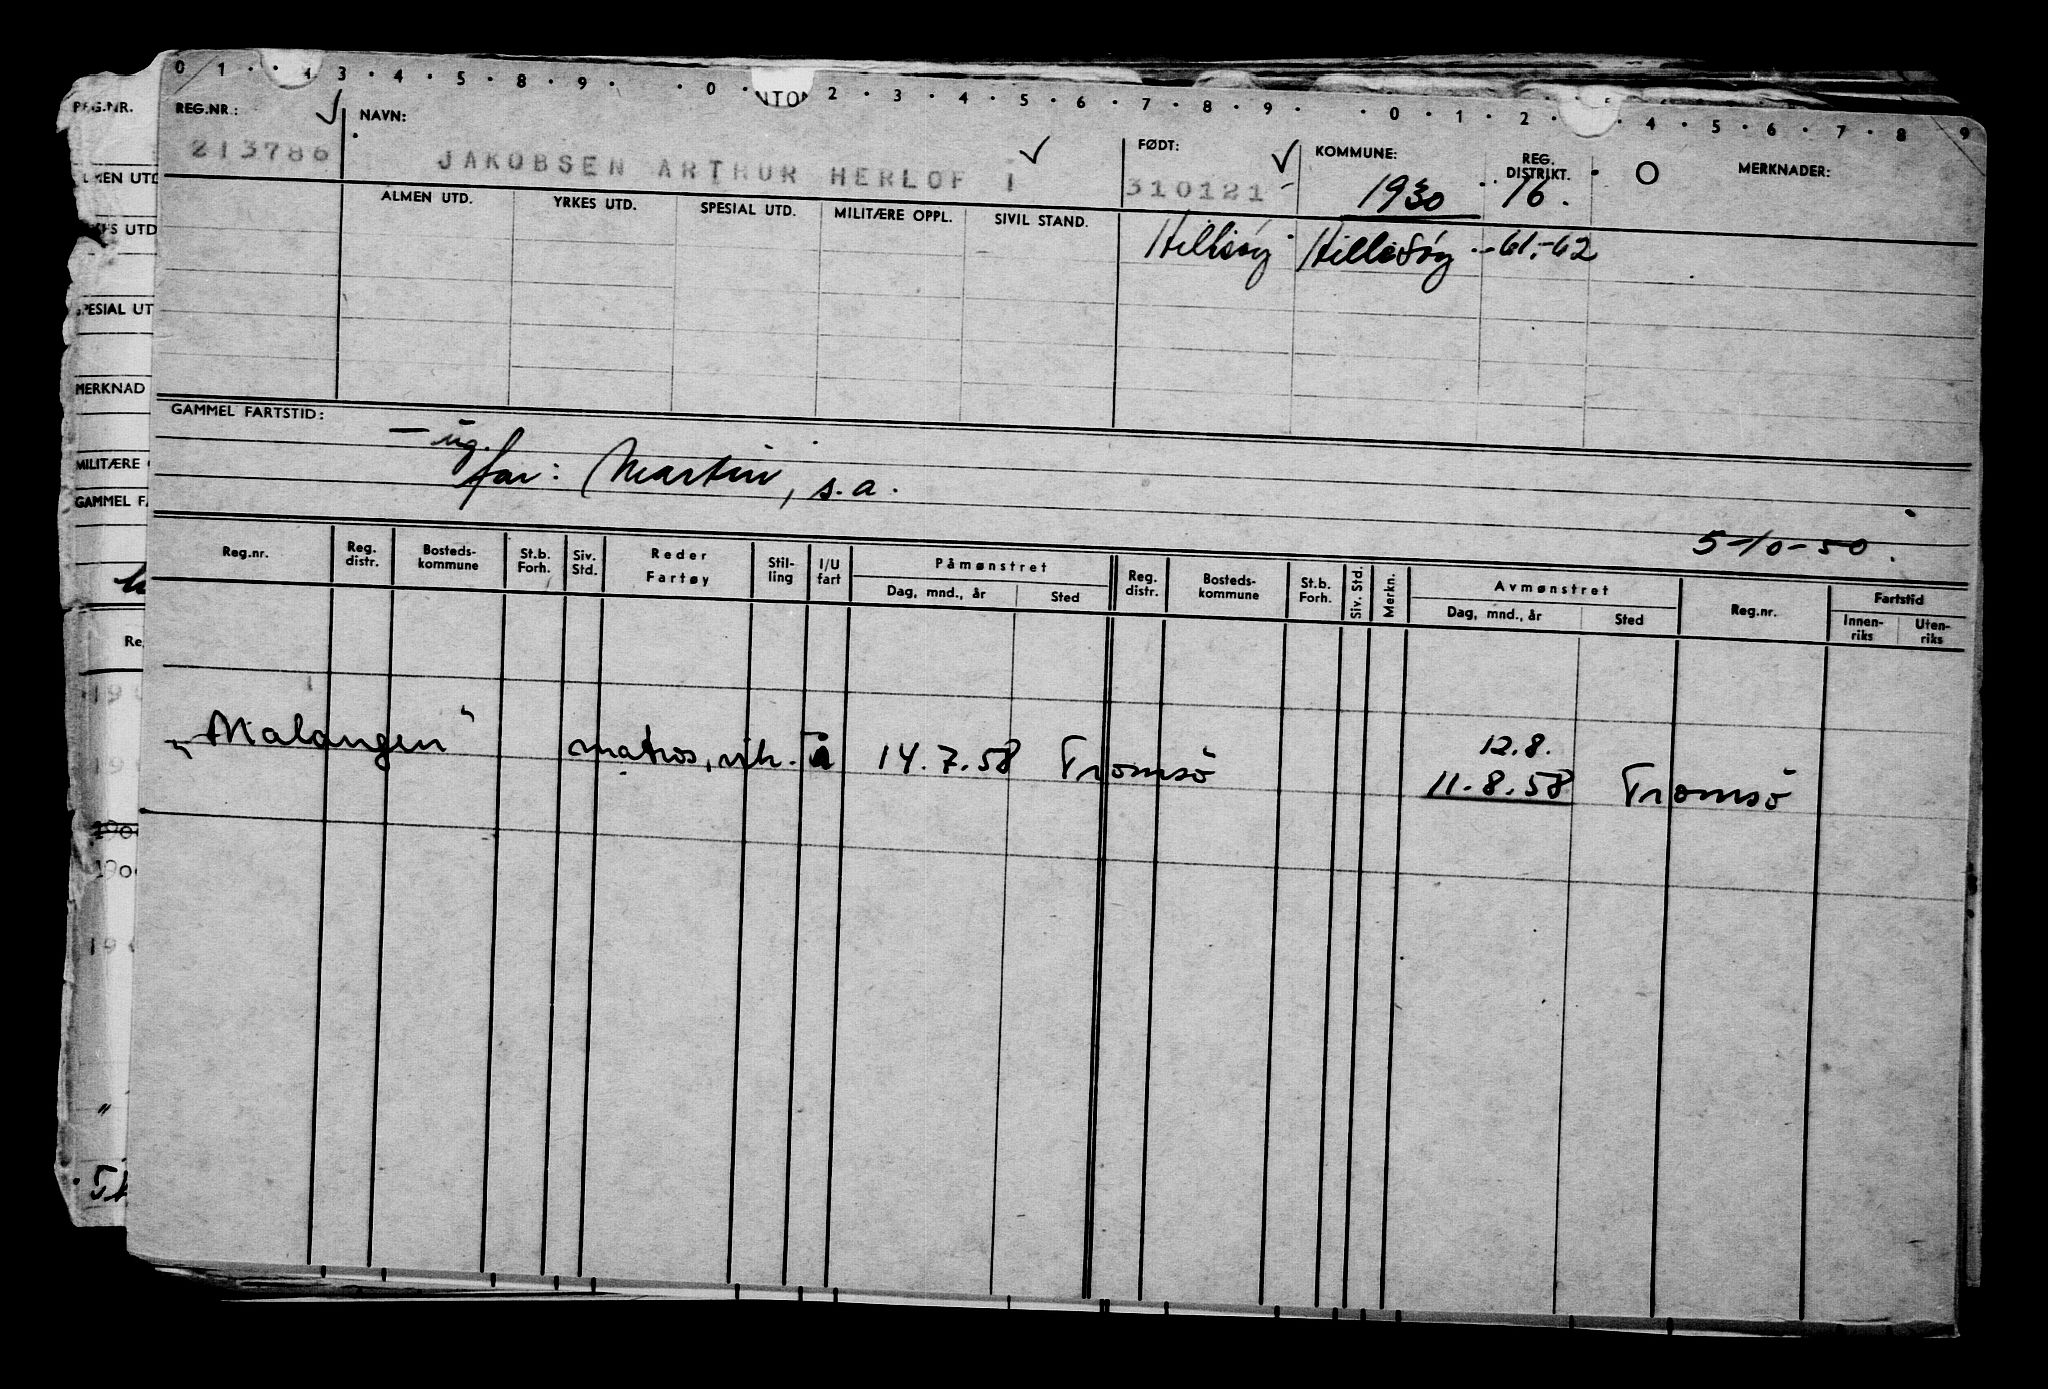 0 1 · · 4 3 · 4 · 5 · 8 · 9 · · 0 · 2 · 3 · 4 · 5 · 6 · 7 · 8 · 9 · · 0 · 1 · 2 · 4 · 5 · 6 · 7 · 8 9
REG.NR. REG.NR.: NAVN: NTON FØDT: KOMMUNE: REG. DISTRIKT. MERKNADER:
213786 JAKOBSEN ARTHUR HERLOF I 310121 1930 16.
ALMEN UTD. YRKES UTD. SPESIAL UTD. MILITÆRE OPPL. SIVIL STAND.
Hillisøy Hillisøy 61.-62
MEN UTD
S UTD
SPESIAL UT
MERKNAD
MILITÆRE
GAMMEL FA
GAMMEL FARTSTID:
— ug.
far: Martin, s.a.
5-10-50.
Reg.nr. Reg. distr. Bosteds- kommune St.b. Forh. Siv. Std. Reder Fartøy Stil- ling I/U fart Påmønstret Reg. distr. Bosteds- kommune St.b. Forh. Siv. Std. Merkn. Avmønstret Reg.nr. Fartstid
Dag, mnd., år Sted Dag, mnd., år Sted Innen- riks Uten- riks
Re
12.8.
"Malangen" matros, vik. 14.7.58 Tromsø 11.8.58 Tromsø